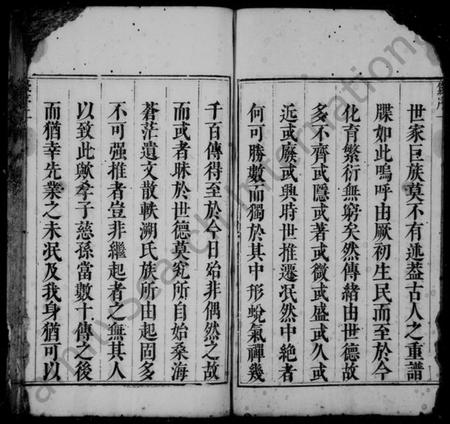 世家巨族莫不有述葢古人之重譜
牒如此嗚呼由厥初生民而至於今
化育繁衍無窮矣然傳緒由世德故
多不齊或隱或著或微或盛或久或
近或廢或興時世推遷泯然中絶者
何可勝數而獨於其中形蛻氣禪幾
千百傳得至於今日殆非偶然之故
而或者昧於世德莫究所自始桑海
蒼茫遺文散軼溯氏族所由起固多
不可强推者豈非繼起者之無其人
以致此歟孝子慈孫當數十傳之後
而猶幸先業之未泯及我身猶可以
FamilySearch International